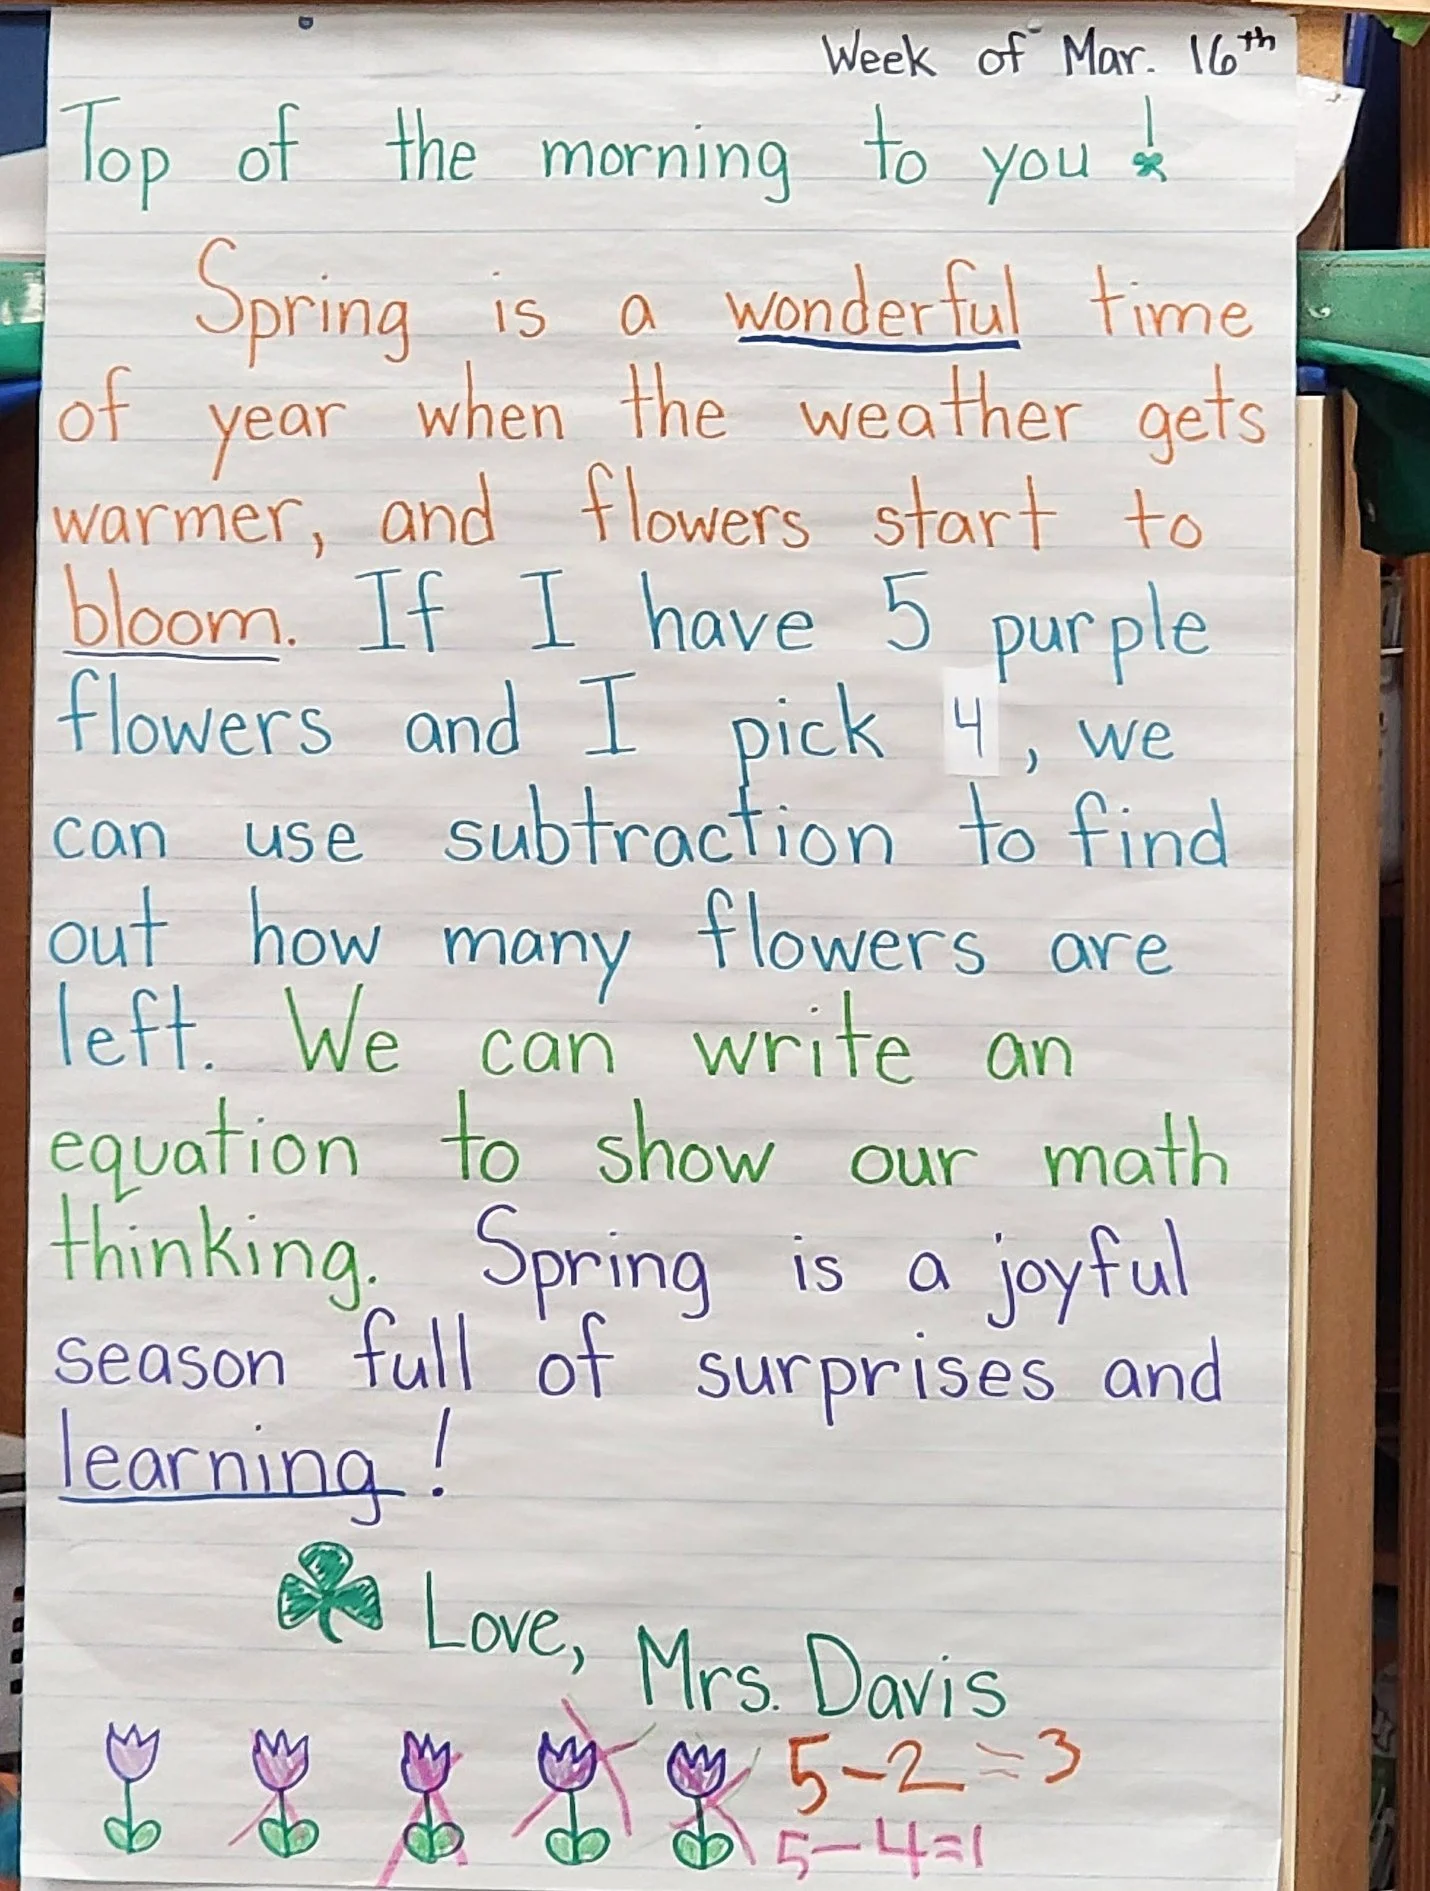 Week of Mar. 16th
Top of the morning to you!
Spring is a wonderful time
of year when the weather gets
warmer, and flowers start to
bloom. If I have 5 purple
flowers and I pick 4, we
can use subtraction to find
out how many flowers are
left. We can write an
equation to show our math
thinking. Spring is a joyful
season full of surprises and
learning!
Love, Mrs. Davis
5-2=3
5-4=1